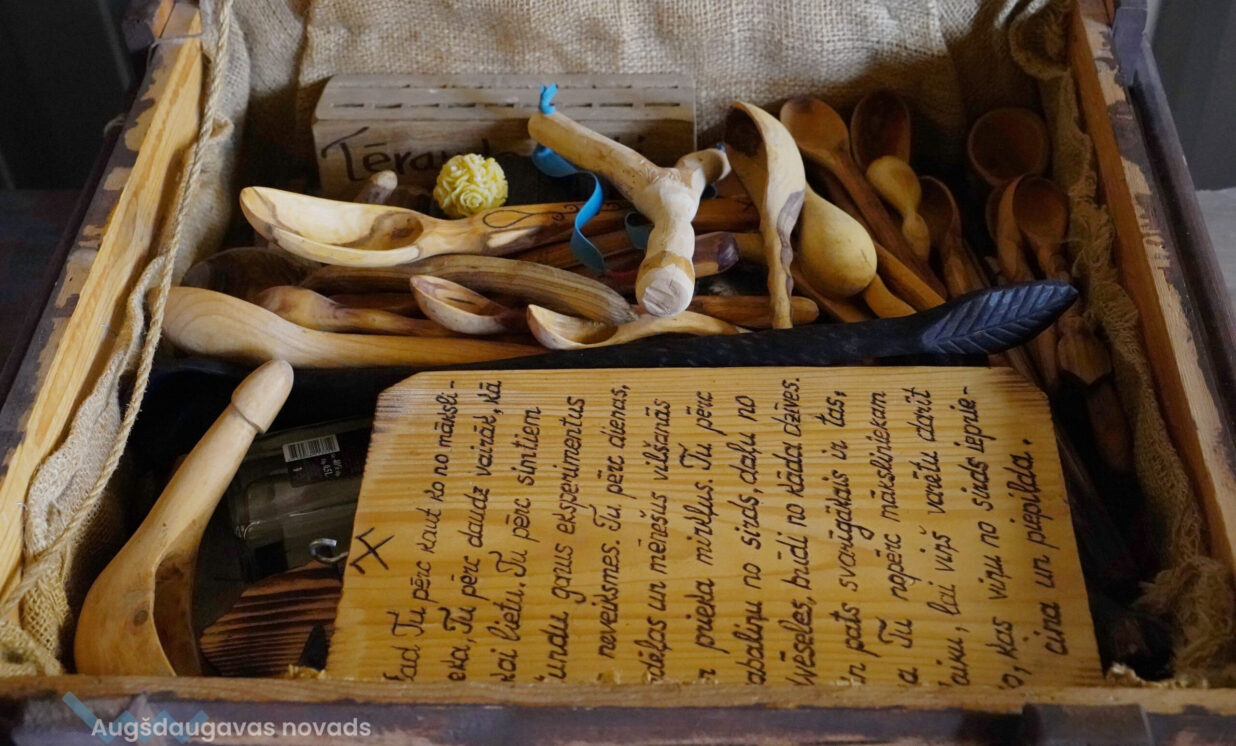 ad Tu pērc kaut ko no māksli-
eka, Tu pērc daudz vairāk, kā
kai lietu. Tu pērc simtiem
undu garus eksperimentus
neveiksmes. Tu pērc dienas,
edēļas un mēnešus vilšanās
n prieka mirkļus. Tu pērc
abaliņu no sirds, daļu no
vēseles, brīdi no kāda dzīves.
n pats svarīgākais ir tas,
a Tu nopērc māksliniekam
laiku, lai viņš varētu darīt
o, kas viņu no sirds ieprie-
cina un piepilda.
Augšdaugavas novads